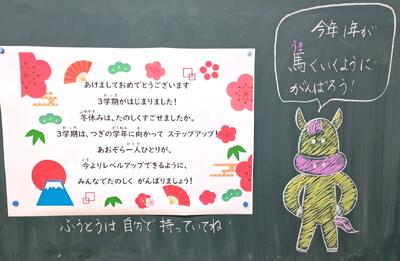 あけましておめでとうございます
3学期がはじまりました!
冬休みは、たのしくすごせましたか。
3学期は、つぎの学年に向かって ステップアップ!
あおぞら一人ひとりが、
今よりレベルアップできるように、
みんなでたのしく がんばりましょう!
ふうとうは 自分で 持っていてね!
今年1年が
馬くいくように
がんばろう!